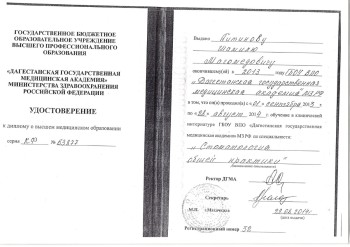 ГОСУДАРСТВЕННОЕ БЮДЖЕТНОЕ
ОБРАЗОВАТЕЛЬНОЕ УЧРЕЖДЕНИЕ
ВЫСШЕГО ПРОФЕССИОНАЛЬНОГО
ОБРАЗОВАНИЯ
«ДАГЕСТАНСКАЯ ГОСУДАРСТВЕННАЯ
МЕДИЦИНСКАЯ АКАДЕМИЯ»
МИНИСТЕРСТВА ЗДРАВООХРАНЕНИЯ
РОССИЙСКОЙ ФЕДЕРАЦИИ
УДОСТОВЕРЕНИЕ
к диплому о высшем медицинском образовании
серия КФ №
Выдано
Магомедовичу
окончившему(ей) в 2013 году ГБОУ ВПО
„Дагестанская государственная
медицинская академия"
в том, что он(а) прошел(а) с «01» сентября 2013
по августа 2014 обучение в клинической
интернатуре ГБОУ ВПО «Дагестанская государственная
медицинская академия МЗ РФ по специальности
„Стоматология
общей практики"
Ректор ДГМА
Секретарь
М.П.
Регистрационный номер